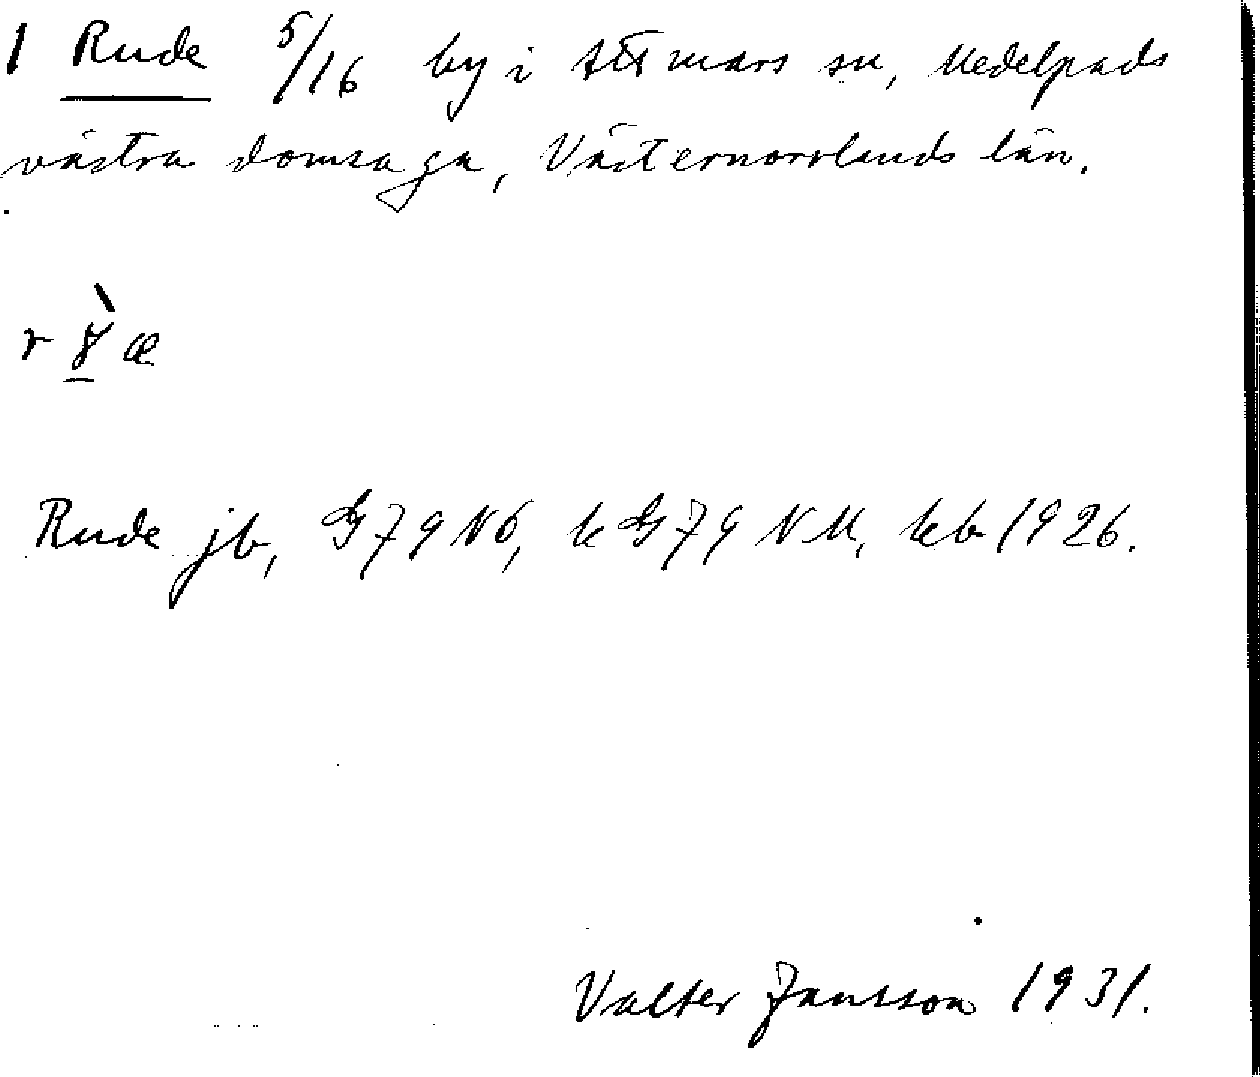 1 Rude 5/16 by i Attmars sn, Medelpads
västra domsaga, Västernorrlands län.
Rude jb, G79NÖ, k G79 NM, kb 1926.
Valter Jansson 1931.